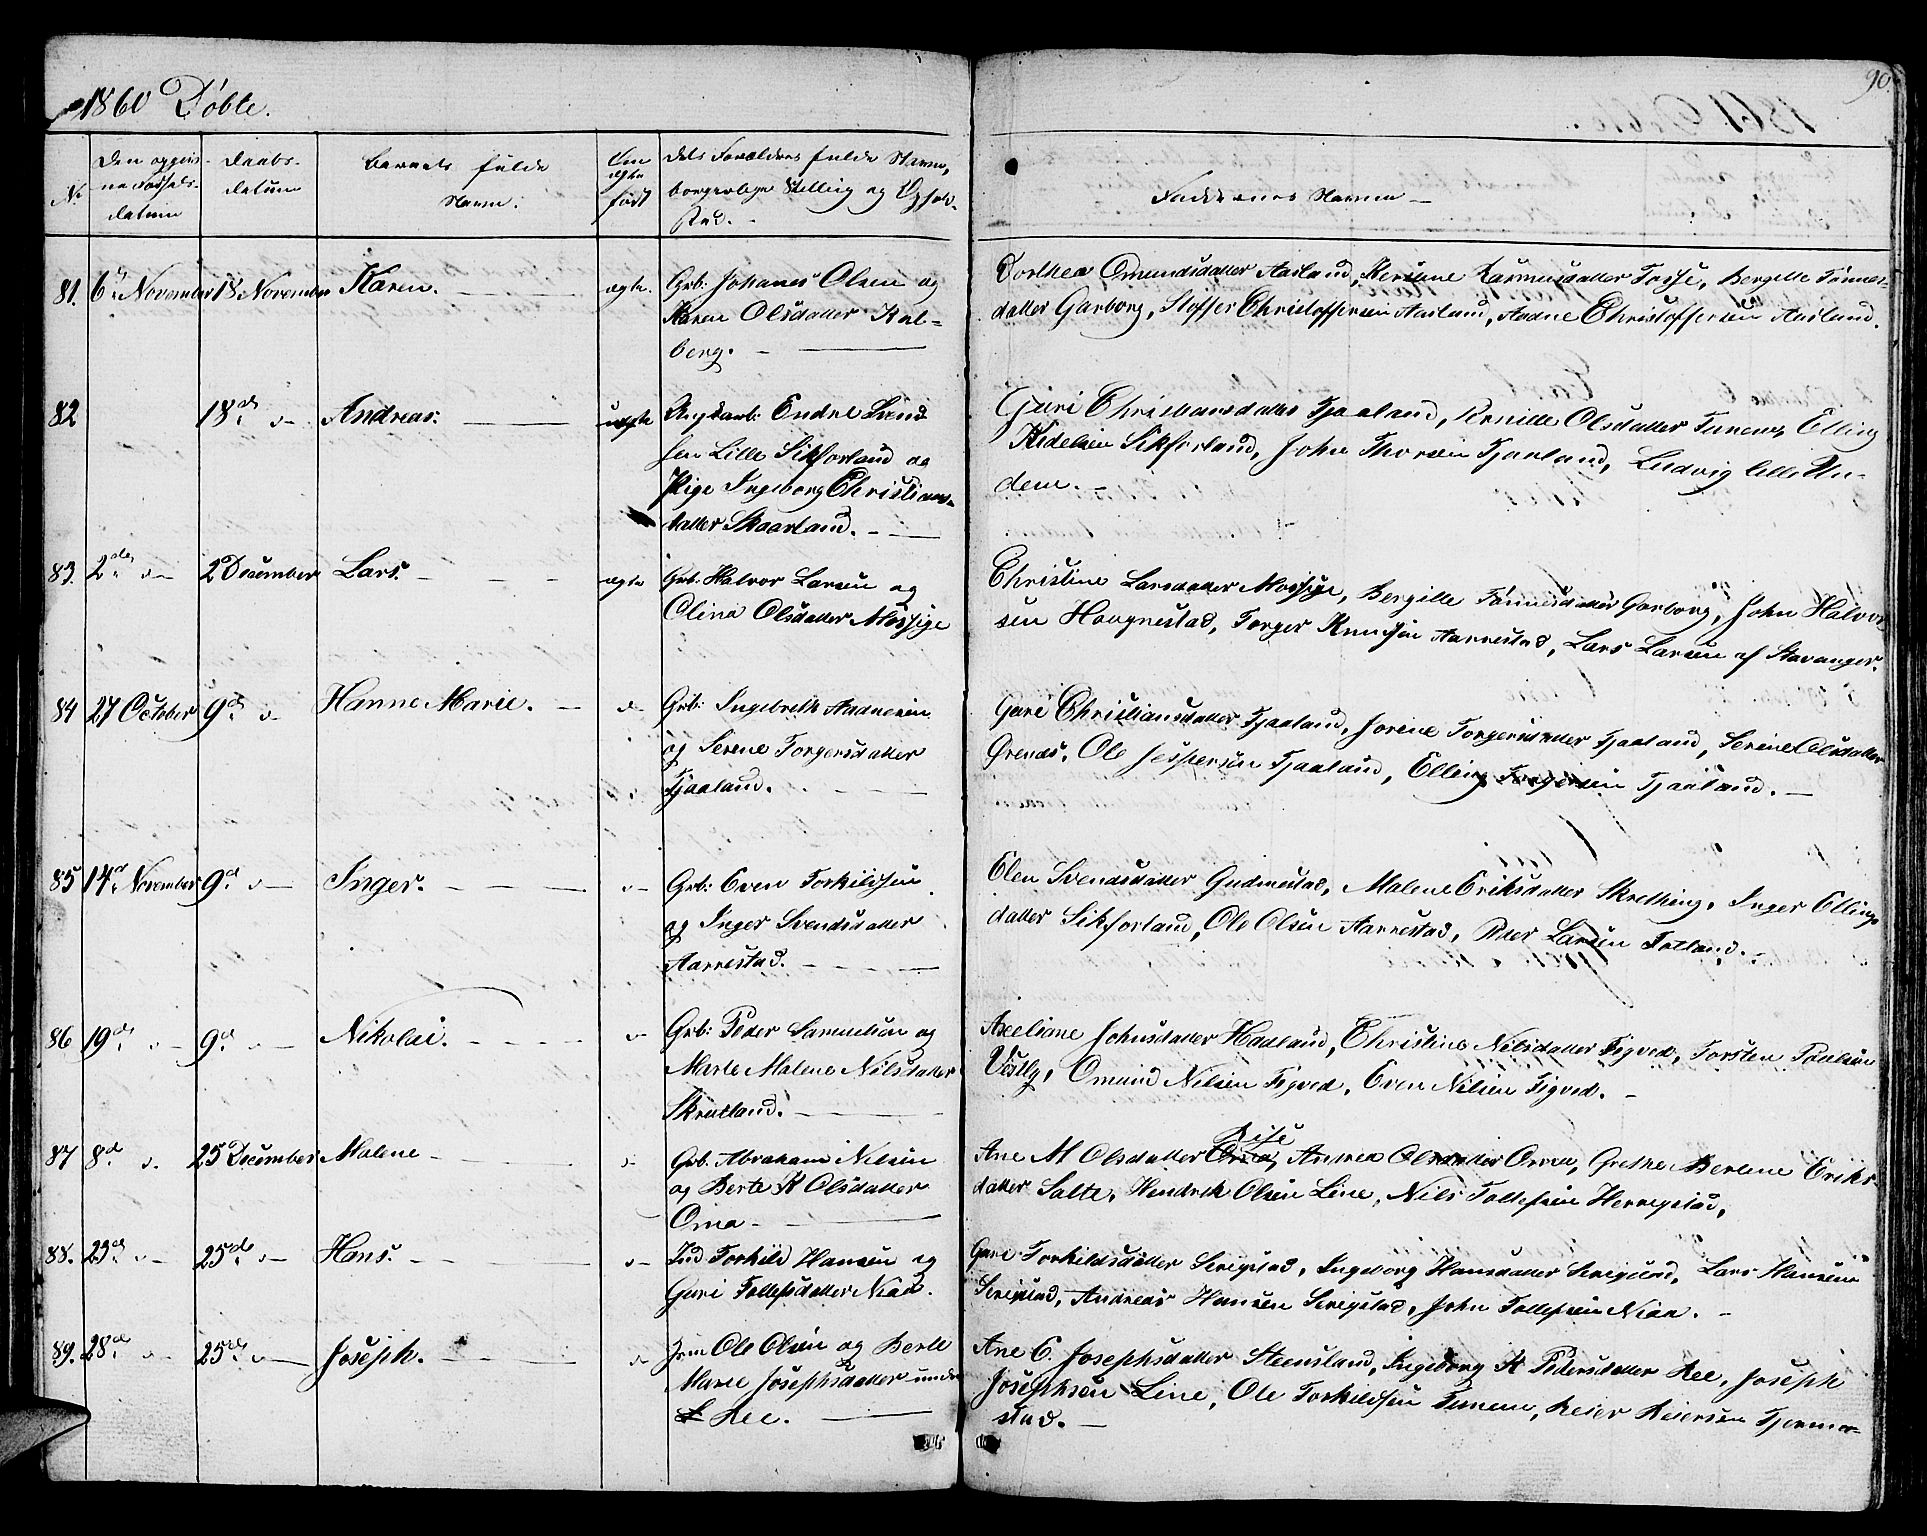 1860 Døbte.
90.
No
Den opgivne Fødsels-datum
Daabs-datum
Barnets fulde Navn.
Om ægte født
Dets Forældres fulde Navne, borgerlige Stilling og Opholdsted.
Faddernes Navne
81. 6 November 18 November Karen. ægte. Grb: Johanes Olsen og
Karen Olsdatter Kal-
berg.
Dorthea Omundsdatter Aasland, Kersene Rasmusdatter Fosse, Bergitte Tønnes-
datter Garborg, Stoffer Christoffersen Aasland, Aadne Christoffersen Aasland.
82 18de Andreas. uægte Endre Svend
sen Lille Sikforland og
Pige Ingeborg Christians-
datter Skaarland.
Guri Christiansdatter Tjaaland, Olsdatter Elling
Sikforland, John Tjaaland, Ludvig lille Un-
dem.
83. 2de 2 December Lars. ægte Grb: Halvor Larsen og
Olina Olsdatter Mossige
Christine Larsdatter Mossige, Bergitte Tønnesdatter Garborg, John Halvor
sen Haugnestad, Torger Knudsen Aarrestad, Lars Larsen af Stavanger.
84 27 October 9de Hanne Marie. Grb: Ingebreth Aadnesen
og Serene Torgersdatter
Tjaaland.
Guri Christiansdatter Tjaaland, Jorine Torgersdatter Tjaaland, Serine Olsdatter
Ørenæs. Ole Jespersen Tjaaland, Elling Torgersen Tjaaland.
85 14de November 9de Inger. Grb: Even Torkildsen
og Inger Svendsdatter
Aarrestad.
Elen Svendsdatter Gudmestad, Malene Eriksdatter Skretting, Inger Ellings
datter Sikforland, Ole Olsen Aarrestad, Peder Larsen Fotland.
86 19de 9de Nikolai. Grb: Peder Samuelsen og
Marte Malene Nilsdatter
Skrutland.
Axeliane Johnsdatter Haaland, Christine Nilsdatter Figved, Torsten Paalsen
Vestly, Omund Nilsen Figved, Even Nilsen Figved.
87 8de 25 December Malene Grb. Abraham Nilsen
og Berte K Olsdatter
Oma
Rise
Ane M Olsdatter Orrea, Andrea Olsdatter Orrea, Grethe Berlene Eriks-
datter Salte, Hendrek Olsen Line, Nils Tollefsen Herregstad,
88. 23de 25de Hans. Ind Torkild Hansen og
Guri Tollefsdatter Niaa.
Guri Torkildsdatter Serigstad, Ingeborg Hansdatter Serigstad, Lars Hansen
Serigstad, Andreas Hansen Serigstad, John Tollefsen Niaa.
89. 28de 25de Joseph. Ole Olsen og Berte
Marie Josephsdatter under
Ree.
Ane C. Josephsdatter Steensland, Ingeborg K Pedersdatter Ree, Joseph
Josephsen Line, Ole Torkildsen Tunem, Reier Reiersen Tjermo-
stad.